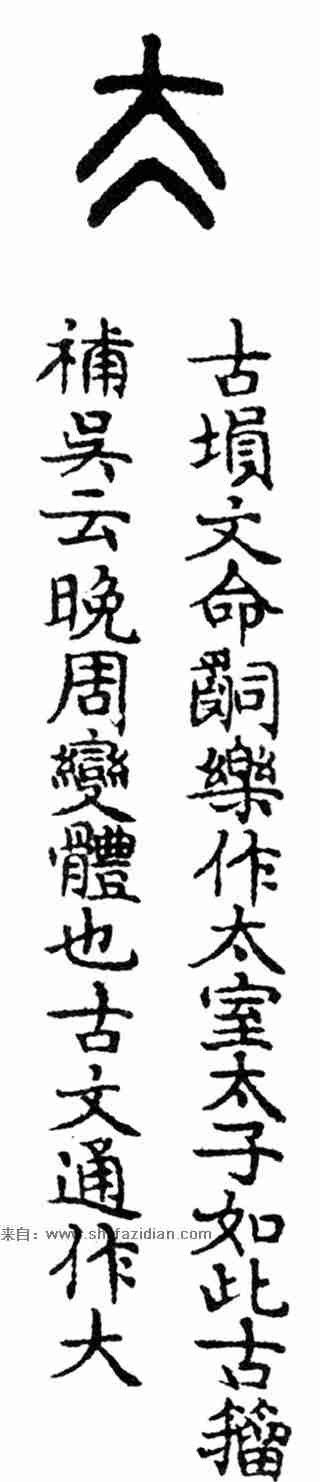 太
古塤文命嗣樂作太室太子如此古籀
補吳云晚周變體也古文通作大
来自：www.shufazidian.com